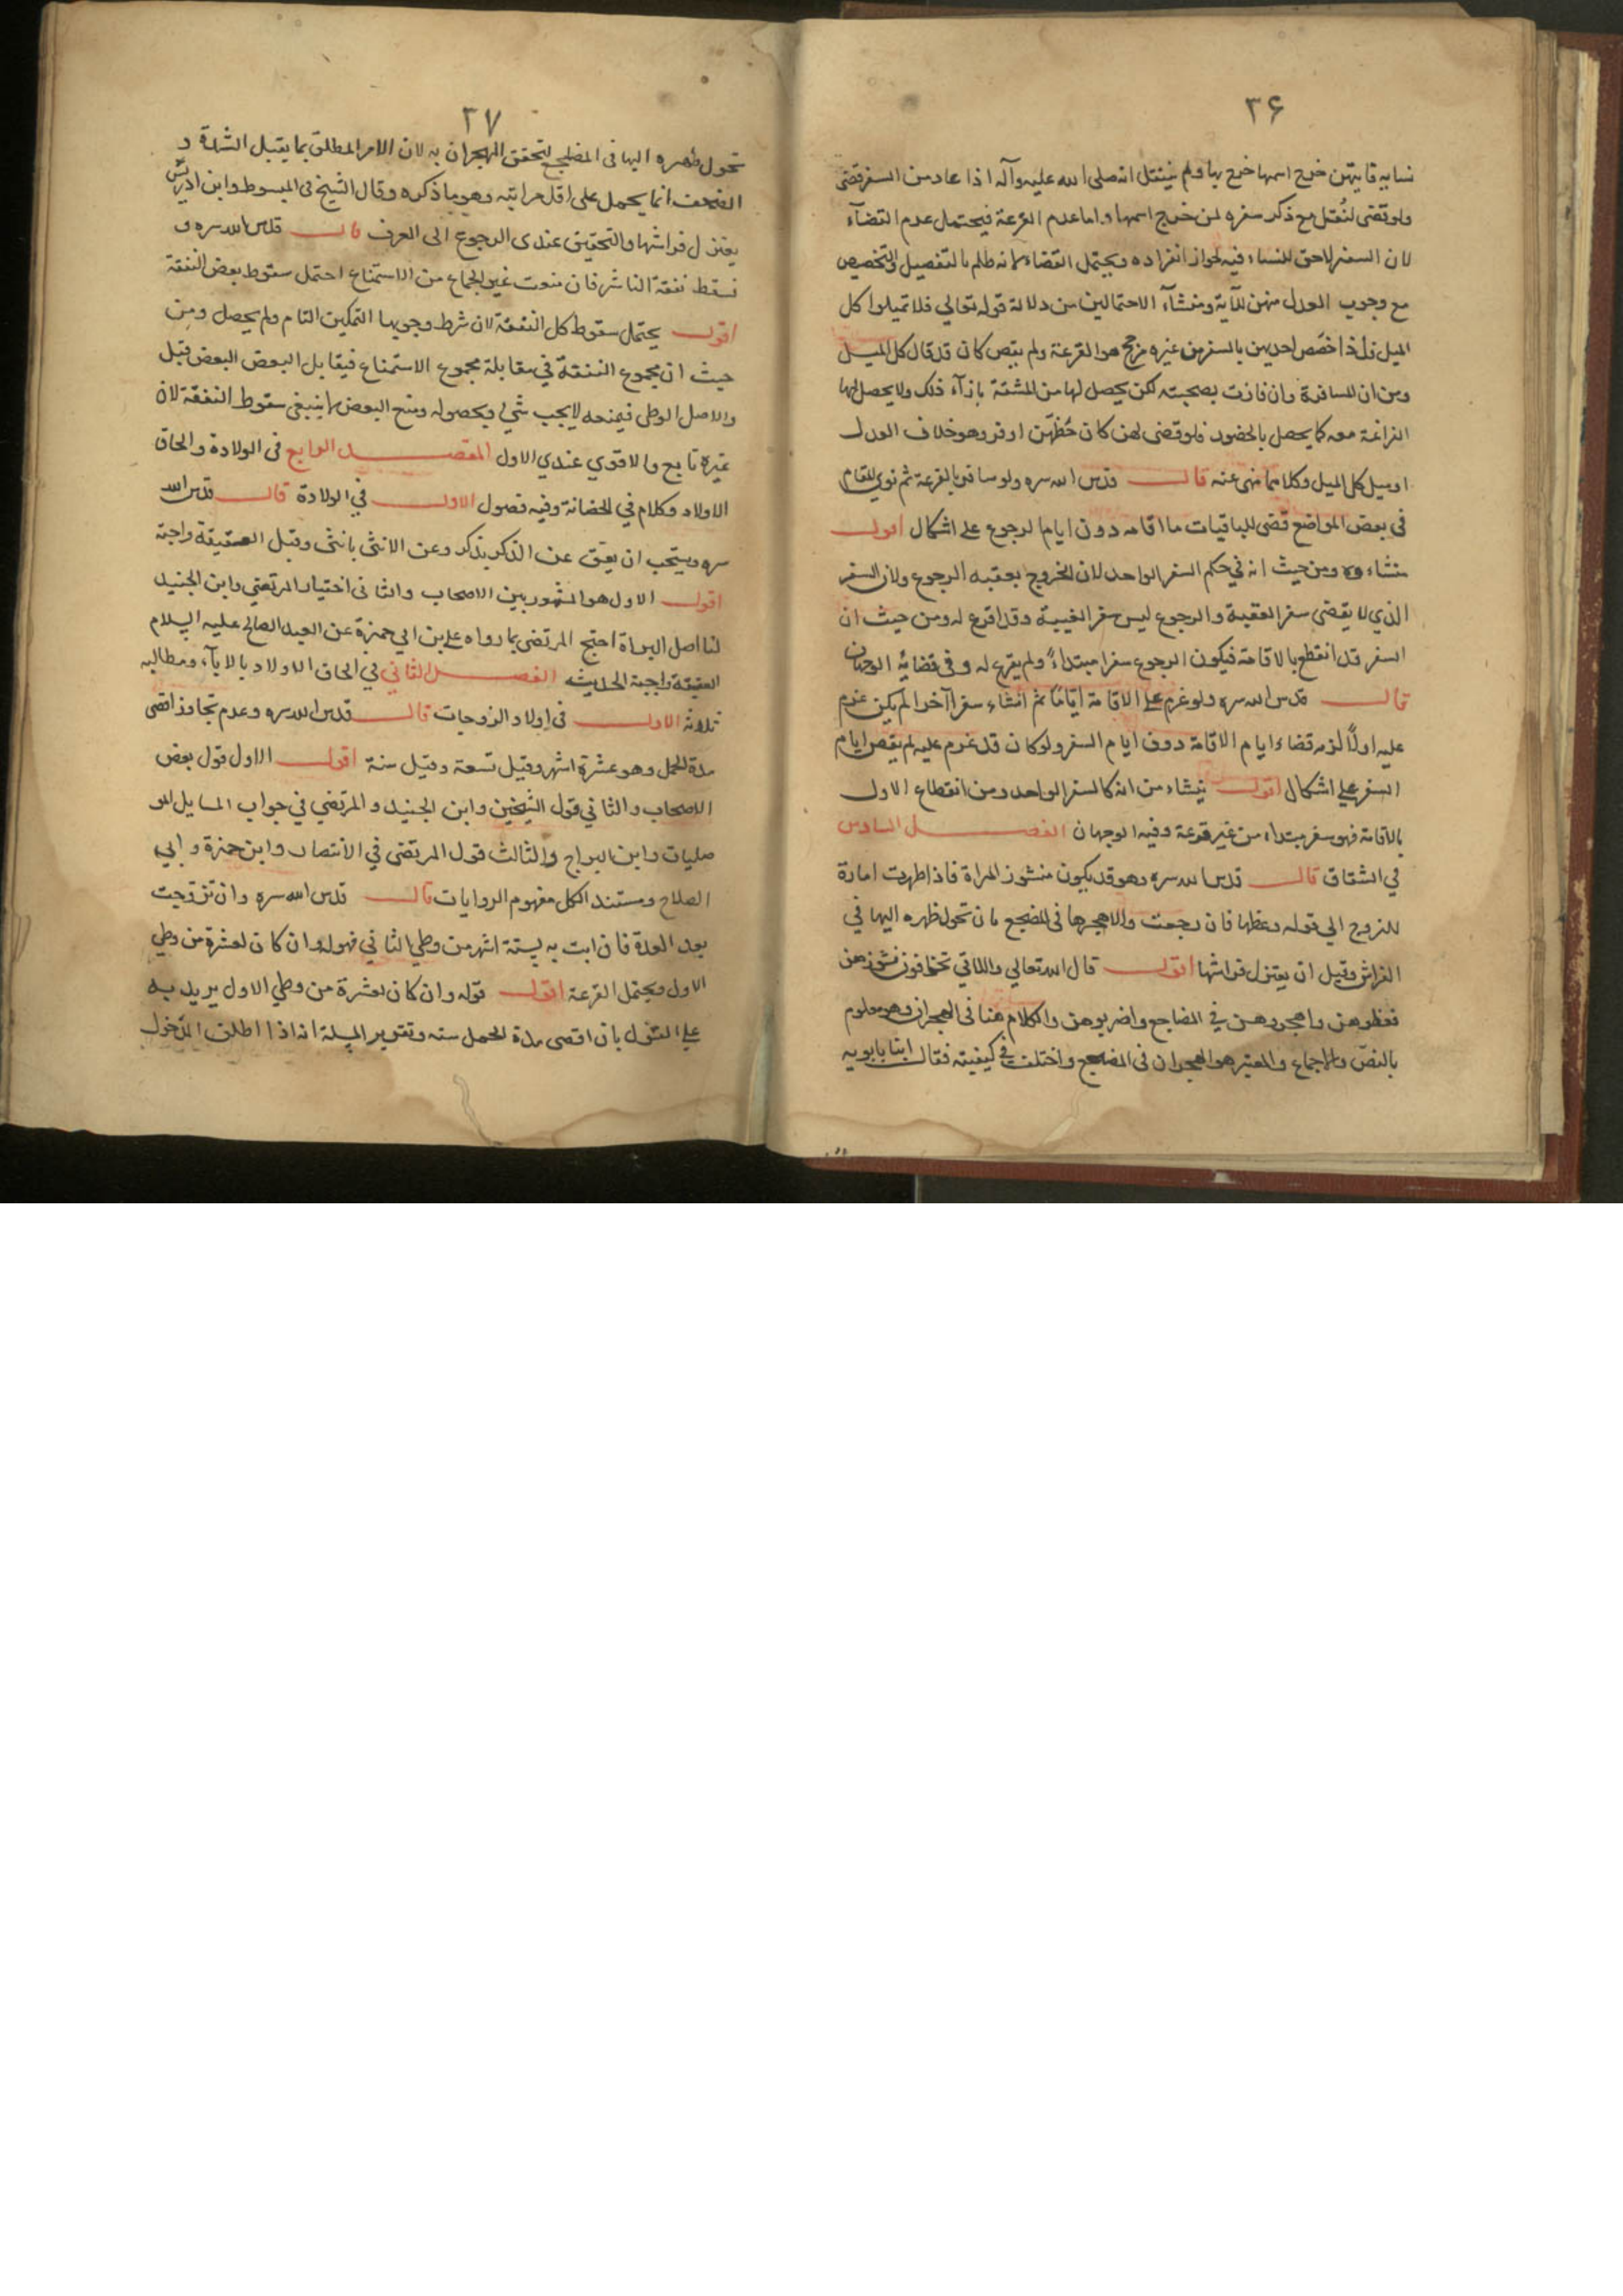 ۳۶
نسایه فایتهن خرج اسمها خرج بها ولم ینتقل انه صلی الله علیه وآله اذا عاد من السفر قضی
ولو قضی لنُقل مع ذکر سفره لمن خرج اسمها واما عدم القرعة فیحتمل عدم القضآء
لان السفر لاحق للنساء فیه لجواز انفراده ویحتمل القضاء لانه ظلم بالتفضیل والتخصیص
مع وجوب العدل منهن للآیة ومنشآء الاحتمالین من دلالة قوله تعالی فلا تمیلوا کل
المیل فلذا خصّص احدیهن بالسفر من غیره مرجح هو القرعة ولم یقض کان قد قال کل المیل
ومن ان المسافرة وان فازت بصحبته لکن یحصل لها من المشقة بازآء ذلک ولا یحصل لها
الفراغة معه کما یحصل بالحضور فلو قضی لهن کان حُظهّن اوفر وهو خلاف العدل
او میل کل المیل وکلاهما منهی عنه قال قدس الله سره ولو سافر بالقرعة ثم نوی المقام
فی بعض المواضع قضی للباقیات ما اقامه دون ایام الرجوع علی اشکال اقول
منشاءه ومن حیث انه فی حکم السفر الواحد لان الخروج یعقبه الرجوع ولان السفر
الذی لا یقضی سفر العقبة والرجوع لیس سفر الغیبة وقد اقرع له ومن حیث ان
السفر قد انقطع بالاقامة فیکون الرجوع سفرا مبتداءً ولم یقرع له وفی قضائه الوجهان
قال قدس الله سره ولو عزم علی الاقامة ایّامًا ثم انشاء سفرا آخرا لم یکن عزم
علیه اولاً لزمه قضاء ایام الاقامة دون ایام السفر ولو کان قد عزم علیه لم یقض ایام
السفر علی اشکال اقول ینشاء من انه کالسفر الواحد ومن انقطاع الاول
بالاقامة فهو سفر مبتداء من غیر قرعة وفیه الوجهان الفصل السادس
فی الشقاق قال قدس الله سره وهو قد یکون منشوز المراة فاذا ظهرت امارة
للزوج الی قوله وعظها فان رجعت والا هجرها فی المضجع بان تحول ظهره الیها فی
الفراش وقیل ان یعتزل فراشها اقول قال الله تعالی واللاتی تخافون نشوزهن
فعظوهن واهجروهن فی المضاجع واضربوهن والکلام هنا فی الهجران وهو معلوم
بالنصّ والاجماع والمعتبر هو الهجران فی المضجع واختلف فی کیفیته فقال ابنا بابویه
۳۷
تحول ظهره الیها فی المضجع لتحقق الهجران به لان الامر المطلق بما یقبل الشدة و
الضعف انما یحمل علی اقل مراتبه وهو ما ذکره وقال الشیخ فی المبسوط وابن ادریس
یعتزل فراشها والتحقیق عندی الرجوع الی العرف قال قدس الله سره و
تسقط نفقة الناشز فان منعت غیر الجماع من الاستمتاع احتمل سقوط بعض النفقة
اقول یحتمل سقوط کل النفقة لان شرط وجوبها التمکین التام ولم یحصل ومن
حیث ان مجموع النفقة فی مقابلة مجموع الاستمتاع فیقابل البعض البعض قیل
والاصل الوطی فبمنعه لا یجب شیٔ وبحصوله ومنع البعض لا ینبغی سقوط النفقة لان
غیره تابع والاقوی عندی الاول المقصد الرابع فی الولادة والحاق
الاولاد وکلام فی الحضانة وفیه فصول الاول فی الولادة قال قدس الله
سره ویستحب ان یعق عن الذکر بذکر وعن الانثی بانثی وقیل العقیقة واجبة
اقول الاول هو المشهور بین الاصحاب والثانی اختیار المرتضی وابن الجنید
لنا اصل البراة احتج المرتضی بما رواه علی بن ابی حمزة عن العبد الصالح علیه السلام
العقیقة واجبة الحدیث الفصل الثانی فی الحاق الاولاد بالابآء ومطالبه
ثلاثة الاول فی اولاد الزوجات قال قدس الله سره وعدم تجاوز اقصی
مدة الحمل وهو عشرة اشهر وقیل تسعة وقیل سنة اقول الاول قول بعض
الاصحاب والثانی قول الشیخین وابن الجنید والمرتضی فی جواب المسایل المو
صلیات وابن البراج والثالث قول المرتضی فی الانتصار وابن حمزة وابی
الصلاح ومستند الکل مفهوم الروایات قال قدس الله سره وان تزوجت
بعد العدة فان اتت به لستة اشهر من وطی الثانی فهو له وان کان لعشرة من وطی
الاول ویحتمل القرعة اقول قوله وان کان لعشرة من وطی الاول یرید به
علی القول بان اقصی مدة الحمل سنه وتقریر المسلة انه اذا اطلق المدخول